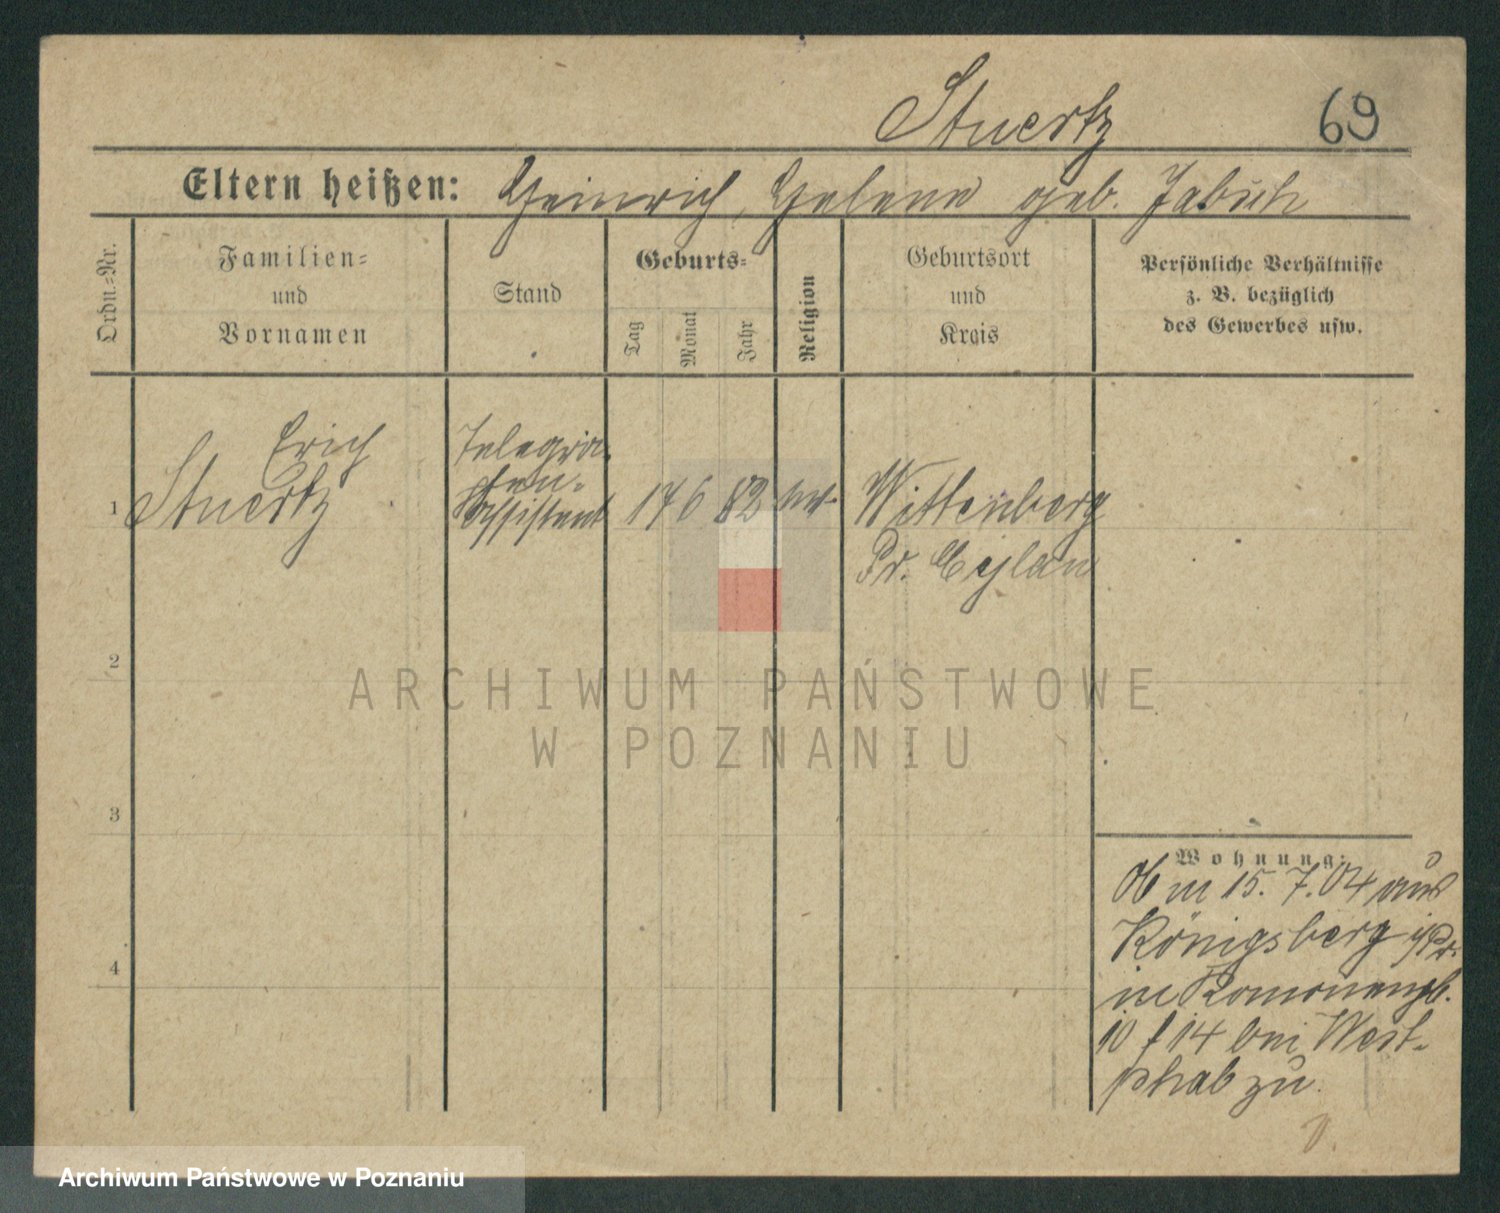 Stuertz 69
Eltern heißen: Heinrich, Helene geb. Jabuh
Ordn.-Nr.
Familien-
und
Vornamen
Stand
Geburts-
Tag
Monat
Jahr
Religion
Geburtsort
und
Kreis
Persönliche Verhältnisse
z. B. bezüglich
des Gewerbes usw.
1
Erich
Stuertz
Telegra-
fen-
Assistent
14 6 82
Wittenberg
Pr. Eylau
2
3
4
ARCHIWUM PAŃSTWOWE
W POZNANIU
Wohnung:
15. 7. 04 aus
Königsberg i/Pr.
in
10 14 bei West-
phal zu.
Archiwum Państwowe w Poznaniu